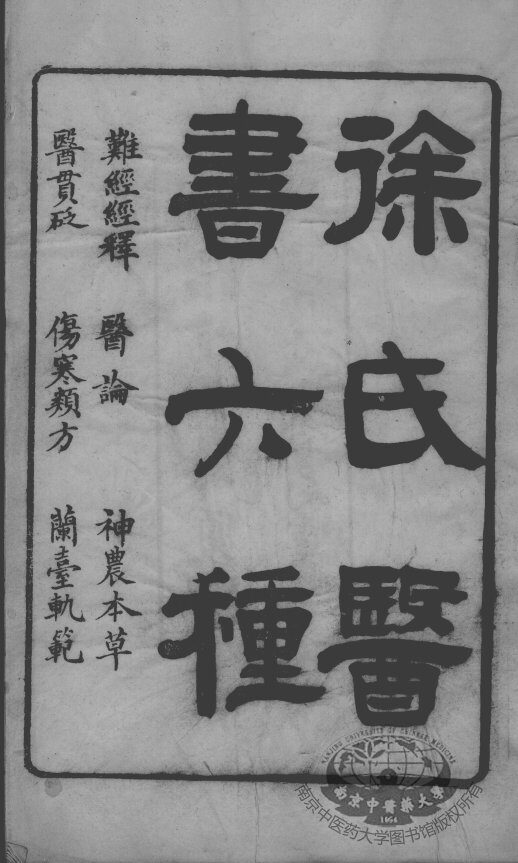 徐氏醫
書六種
難經經釋 醫論 神農本草
醫貫砭 傷寒類方 蘭臺軌範
NANJING UNIVERSITY OF CHINESE MEDICINE
南京中醫藥大學
1954
南京中医药大学图书馆版权所有